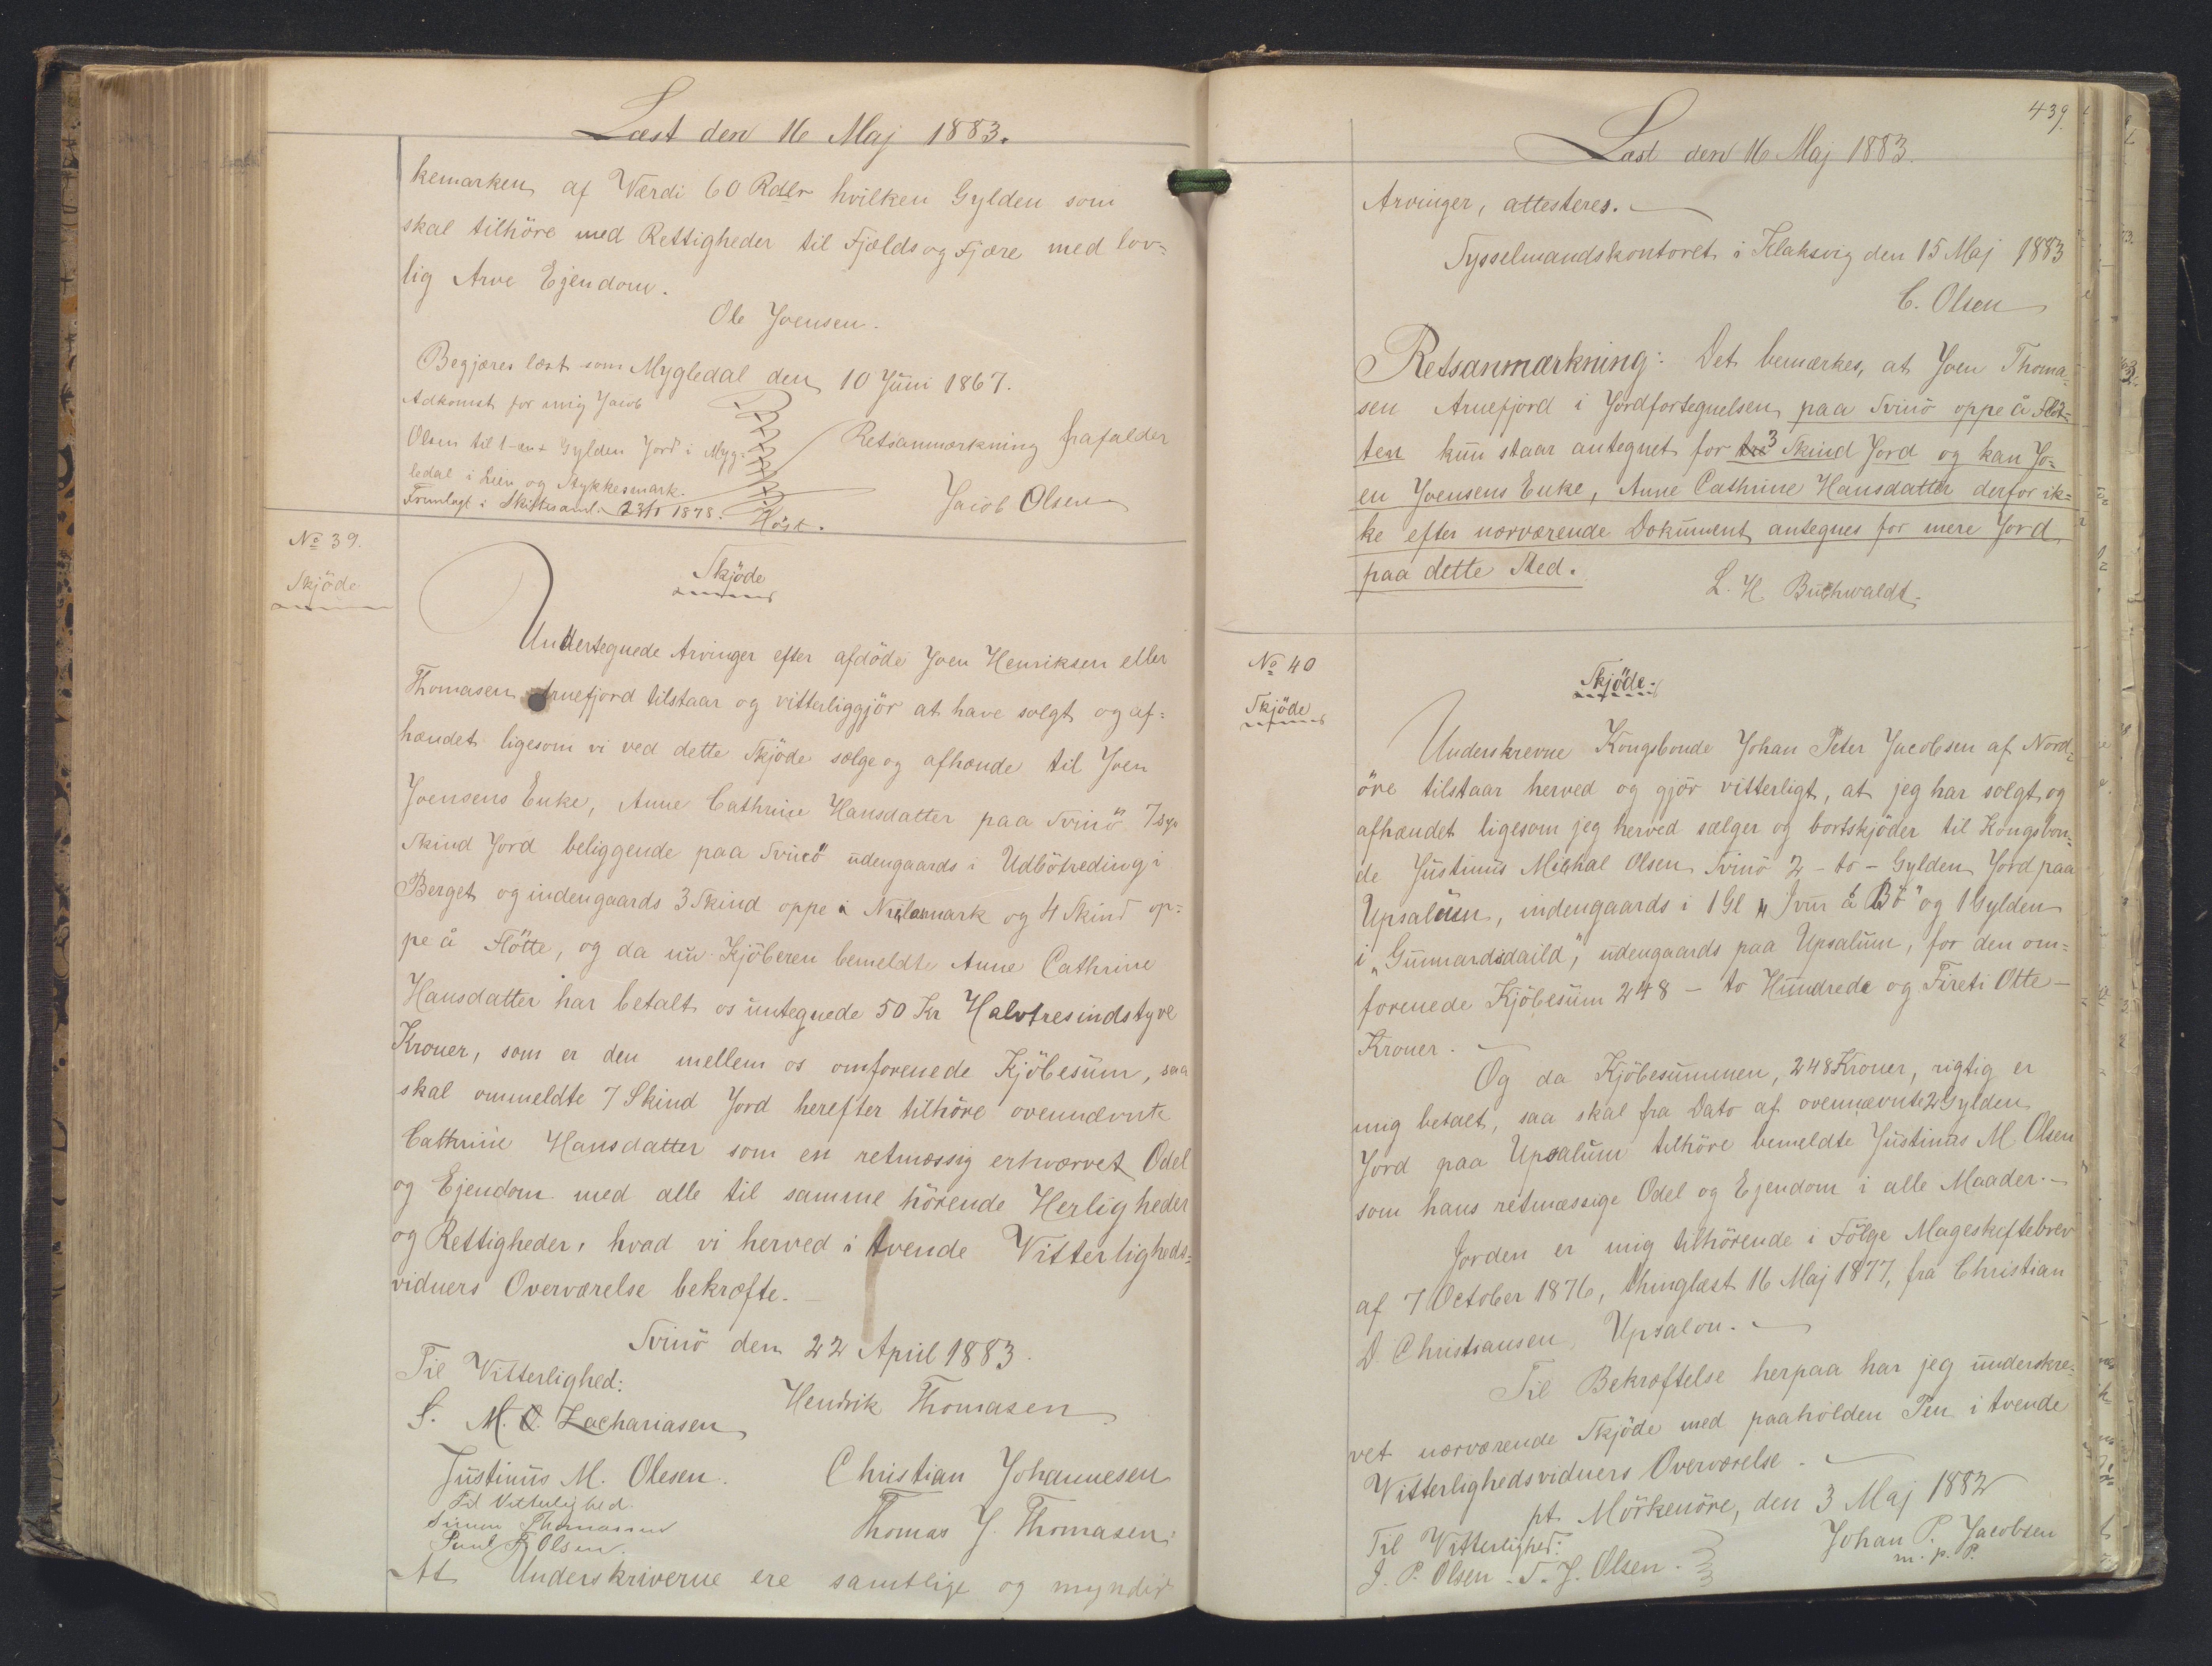 Læst den 16 Maj 1883.
kemarken af Værdi 60 Rdlr hvilken Gylden som
skal tilhöre med Rettigheder til Fjelds og Fjære med lov=
lig Arve Ejendom.
Ole Joensen.
Begjæres læst som Mygledal den 10 Juni 1867.
Adkomst for mig Jacob
Olsen til 1-en+ Gylden Jord i Myg=
ledal i Lien og Stykkesmark.
Retsanmærkning frafalder
Fremlagt i Skiftesaml. 23/5 1878. Höst.
Jacob Olsen
No 39.
Skjöde
Skjöde
Undertegnede Arvinger efter afdöde Joen Henriksen eller
Thomasen Arnefjord tilstaar og vitterliggjör at have solgt og af=
hændet ligesom vi ved dette Skjöde sælge og afhænde til Joen
Joensens Enke, Anne Cathrine Hansdatter paa Svinö 7 syv
Skind Jord beliggende paa Svinö udengaards i Udbötreding i
Berget og indengaards 3 Skind oppe i og 4 Skind op=
pe å Flötte, og da nu Kjöberen bemeldte Anne Cathrine
Hansdatter har betalt os untegnede 50 Kr Halvtresindstyve
Kroner, som er den mellem os omforenede Kjöbesum, saa
skal ommeldte 7 Skind Jord herefter tilhöre ovennævnte
Cathrine Hansdatter som en retmæssig erhværvet Odel
og Ejendom med alle til samme hörende Herligheder
og Rettigheder, hvad vi herved i tvende Vitterligheds=
vidners Overværelse bekræfte.
Svinö den 22 April 1883.
Til Vitterlighed:
Hendrik Thomasen
S. M. O. Zachariasen
Justinus M. Olesen.
Christian Johannesen
Til Vitterlighed
Simun Thomassen
Thomas J. Thomasen.
Poul F. Olsen.
At Underskriverne ere samtlige og myndig
439.
Læst den 16 Maj 1883.
Arvinger, attesteres.
Sysselmandskontoret i Klaksvig den 15 Maj 1883
C. Olsen
Retsanmærkning: Det bemærkes, at Joen Thoma=
sen Arnefjord i Jordfortegnelsen paa Svinö oppe å Flöt=
ten kun staar antegnet for tre 3 Skind Jord og kan Jo=
en Joensens Enke, Anne Cathrine Hansdatter derfor ik=
ke efter nærværende Dokument antegnes for mere Jord
paa dette Sted.
L. H. Buchwaldt
No 40
Skjöde
Skjöde.
Underskrevne Kongsbonde Johan Peter Jacobsen af Nord=
öre tilstaar herved og gjör vitterligt, at jeg har solgt og
afhændet ligesom jeg herved sælger og bortskjöder til Kongsbon=
de Justinus Michal Olsen Svinö 2 - to - Gylden Jord paa
Upsalum, indengaards i 1 Gl „Ivur å Bö" og 1 Gylden
i „Gunnardsdaild", udengaards paa Upsalum, for den om=
forenede Kjöbesum 248 - to Hundrede og Fireti Otte -
Kroner.
Og da Kjöbesummen, 248 Kroner, rigtig er
mig betalt, saa skal fra Dato af ovennævnte 2 Gylden
Jord paa Upsalum tilhöre bemeldte Justinus M. Olsen
som hans retmæssige Odel og Ejendom i alle Maader.
Jorden er mig tilhörende i Fölge Mageskiftebrev
af 7 October 1876, thinglæst 16 Maj 1877, fra Christian
D. Christiansen, Upsalon.
Til Bekræftelse herpaa har jeg underskre=
vet nærværende Skjöde med paaholden Pen i tvende
Vitterlighedsvidners Overværelse.
pt. Mörkenöre, den 3 Maj 1882
Til Vitterlighed:
Johan P. Jacobsen
J. P. Olsen. S. J. Olsen.
m. p. P.